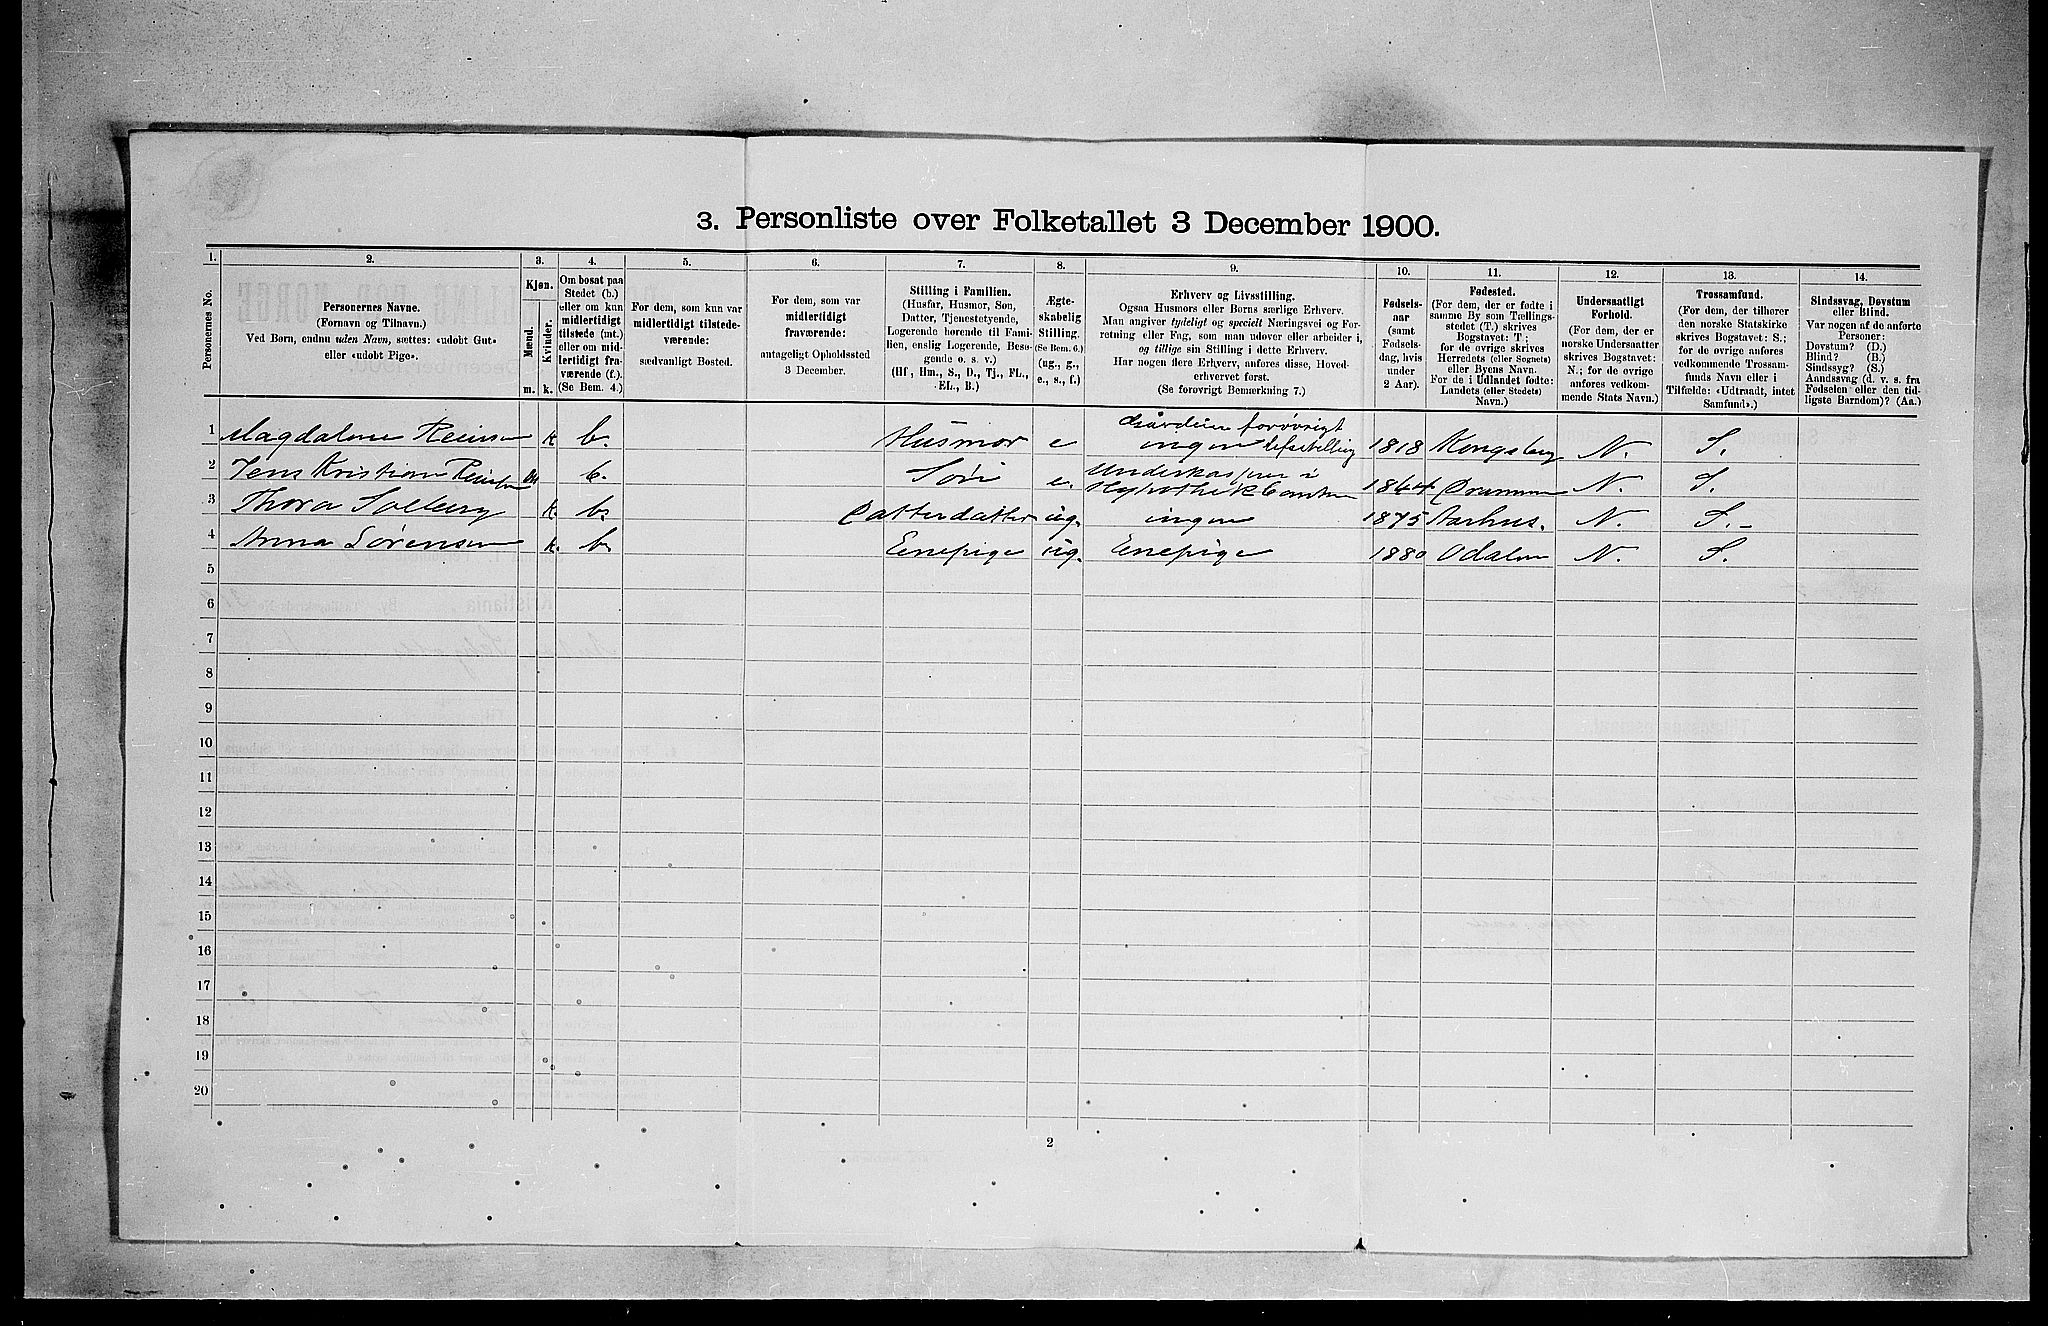 3. Personliste over Folketallet 3 December 1900.
1.
Personernes No.
2.
Personernes Navne.
(Fornavn og Tilnavn.)
Ved Børn, endnu uden Navn, sættes: «udobt Gut»
eller «udobt Pige».
3.
Kjøn.
Mænd.
Kvinder.
m.
k.
4.
Om bosat paa
Stedet (b.)
eller om kun
midlertidigt
tilstede (mt.)
eller om mid-
lertidigt fra-
værende (f.).
(Se Bem. 4.)
5.
For dem, som kun var
midlertidigt tilstede-
værende:
sædvanligt Bosted.
6.
For dem, som var
midlertidigt
fraværende:
antageligt Opholdssted
3 December.
7.
Stilling i Familien.
(Husfar, Husmor, Søn,
Datter, Tjenestetyende,
Logerende hørende til Fami-
lien, enslig Logerende, Besø-
gende o. s. v.)
(Hf, Hm., S., D., Tj., FL.,
EL., B.)
8.
Ægte-
skabelig
Stilling.
(Se Bem. 6.)
(ug., g.,
e., s., f.)
9.
Erhverv og Livsstilling.
Ogsaa Husmors eller Børns særlige Erhverv.
Man angiver tydeligt og specielt Næringsvei og For-
retning eller Fag, som man udover eller arbeider i,
og tillige sin Stilling i dette Erhverv.
Har nogen flere Erhverv, anføres disse, Hoved-
erhvervet først.
(Se forøvrigt Bemerkning 7.)
10.
Fødsels-
aar
(samt
Fødsels-
dag, hvis
under
2 Aar).
11.
Fødested.
(For dem, der er fødte i
samme By som Tællings-
stedet (T.) skrives
Bogstavet: T.;
for de øvrige skrives
Herredets (eller Sognets)
eller Byens Navn.
For de i Udlandet fødte:
Landets (eller Stedets)
Navn.)
12.
Undersaatligt
Forhold.
(For dem, der er
norske Undersaatter
skrives Bogstavet:
N.; for de øvrige
anføres vedkom-
mende Stats Navn.)
13.
Trossamfund.
(For dem, der tilhører
den norske Statskirke
skrives Bogstavet: S.;
for de øvrige anføres
vedkommende Trossam-
funds Navn eller i
Tilfælde: «Udtraadt, intet
Samfund».)
14.
Sindssvag, Døvstum
eller Blind.
Var nogen af de anførte
Personer:
Døvstum? (D.)
Blind? (B.)
Sindssyg? (S.)
Aandssvag (d. v. s. fra
Fødselen eller den tid-
ligste Barndom)? (Aa.)
1 Magdalene Reiersen k b. Husmor e Gårdeier forøvrigt
ingen 1818 Kongsberg N. S.
2 Jens Kristian Reiersen m b. Søn e. Underkasserer i
1864 Drammen N. S.
3 Thora Solberg k. b. Datterdatter ug. ingen 1875 Aarhus. N. S.
4 Anna Sørensen k. b. Enepige ug. Enepige 1880 Odalen N. S.
5
6
7
8
9
10
11
12
13
14
15
16
17
18
19
20
2